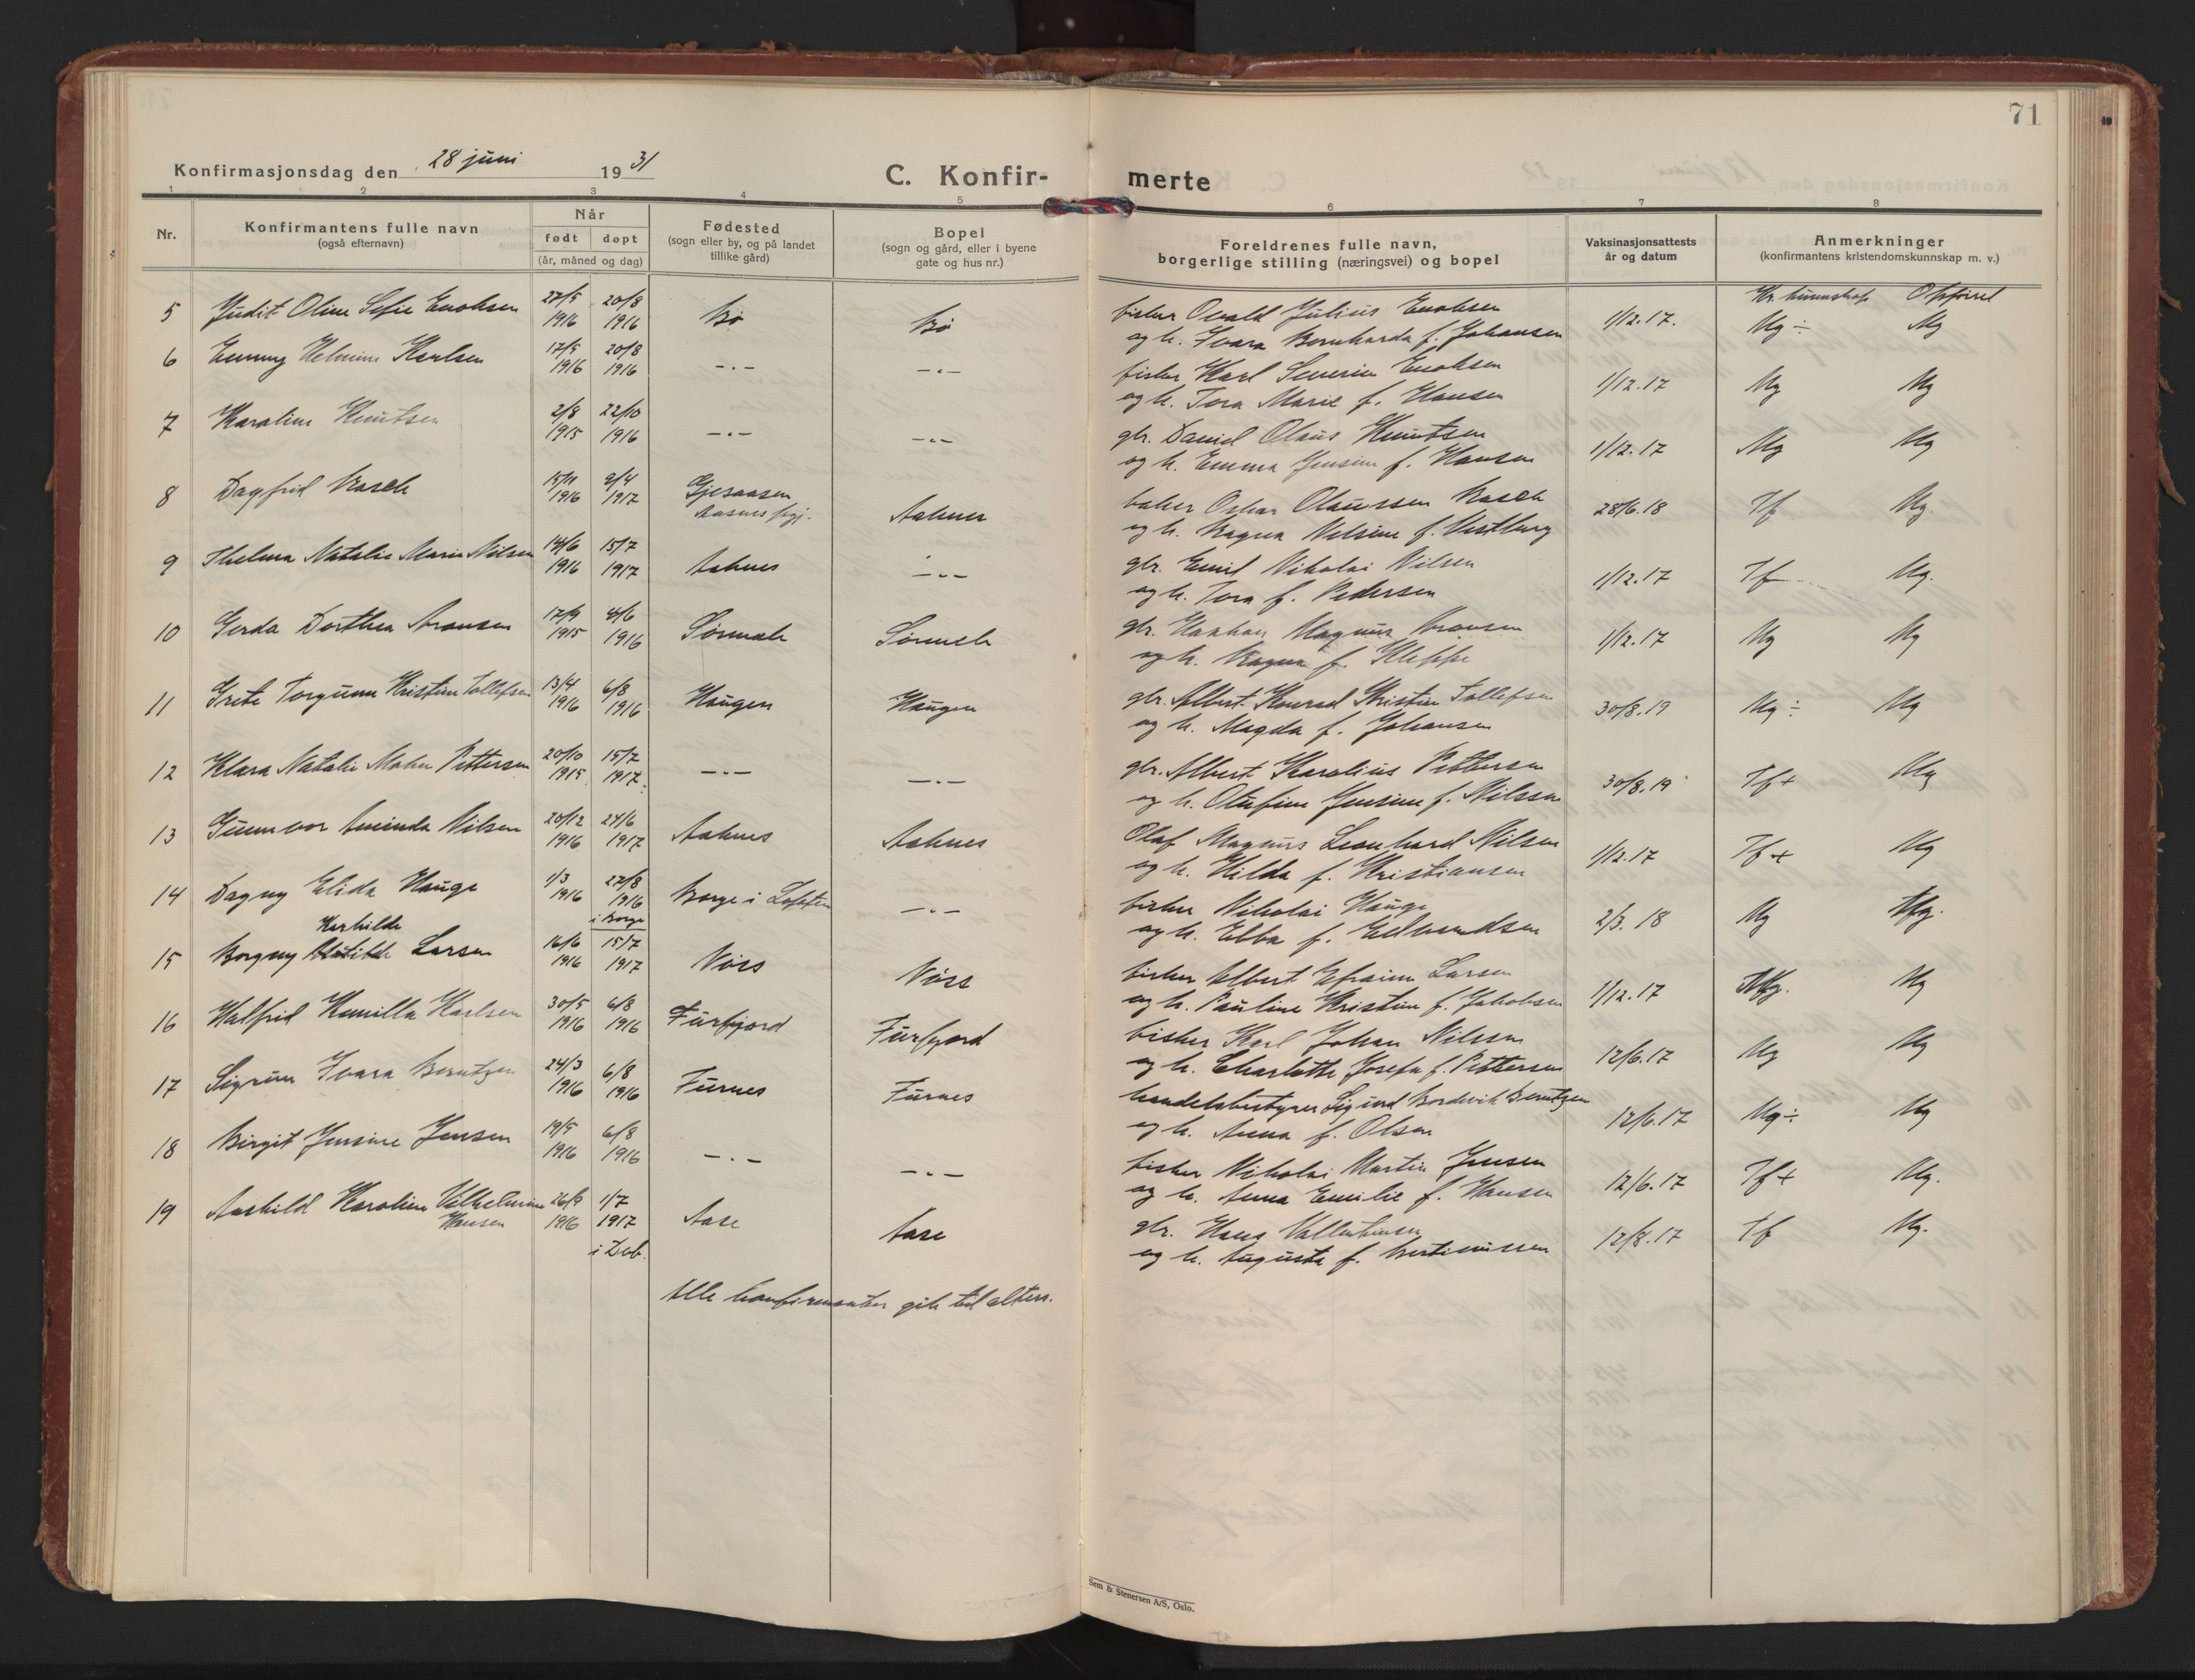 71
Konfirmasjonsdag den 28 juni 1931
C. Konfir- merte
1 2 3 4 5 6 7 8
Nr.
Konfirmantens fulle navn
(også efternavn)
Når
født døpt
(år, måned og dag)
Fødested
(sogn eller by, og på landet
tillike gård)
Bopel
(sogn og gård, eller i byene
gate og hus nr.)
Foreldrenes fulle navn,
borgerlige stilling (næringsvei) og bopel
Vaksinasjonsattests
år og datum
Anmerkninger
(konfirmantens kristendomskunnskap m. v.)
Kr. kunnskap Opførsel
5 Judit Oline Sofie Enoksen 27/5 1916 20/8 1916 Bø Bø
fisker Osvald Julius Enoksen
og h. Ivara Bernharda f. Johansen 1/12.17. Mg ÷ Mg
6 Emmy Helmine Karlsen 17/5 1916 20/8 1916 —.— —.—
fisker Karl Severin Enoksen
og h. Tora Marie f. Hansen 1/12.17 Mg Mg
7 Karoline Knutsen 2/8 1915 22/10 1916 —.— —.—
gbr. Daniel Olaus Knutsen
og h. Emma Jensine f. Hansen 1/12.17 Mg Mg
8 Dagfrid Rasch 15/11 1916 9/4 1917 Gjesaasen Aasnes pgj. Aaknes
baker Oskar Olaussen Rasch
og h. Ragna Nelsine f. Vestberg 28/6.18 Tf Mg.
9 Thelma Natalie Marie Nilsen 14/6 1916 15/7 1917 Aaknes —.—
gbr. Emil Nikolai Nilsen
og h. Tora f. Pedersen 1/12.17 Tf Mg.
10 Gerda Dorthea Aronsen 17/9 1915 4/6 1916 Sørmek Sørmek
gbr. Haakon Magnus Aronsen
og h. Ragna f. Kleppe 1/12.17 Mg Mg
11 Grete Torgunn Kristine Tollefsen 13/4 1916 6/8 1916 Haugen Haugen
gbr. Albert Konrad Kristian Tollefsen
og h. Magda f. Johansen 30/8.19 Mg ÷ Mg
12 Klara Natalie Pettersen 20/10 1915 15/7 1917. —.— —.—
gbr. Albert Karolius Pettersen
og h. Olufine Jensine f. Nilssen 30/8.19 Tf+ Mg
13 Gunnvor Aminda Nilsen 20/12 1916 24/6 1917 Aaknes Aaknes
Olaf Magnus Leonhard Nilsen
og h. Hilda f. Kristiansen 1/12.17 Tf+ Mg
14 Dagny Elida Hauge 1/3 1916 27/8 1916 i Borge Borge i Lofoten —.—
fisker Nikolai Hauge
og h. Ebba f. Edvardsen 2/3.18 Mg Mg.
Kerhilde
15 Borgny Larsen 16/6 1916 15/7 1917 Nøss Nøss
fisker Albert Efraim Larsen
og h. Pauline Kristine f. Jakobsen 1/12.17 Mg. Mg
16 Halfrid Kamilla Karlsen 30/5 1916 6/8 1916 Furfjord Furfjord
fisker Karl Johan Nilssen
og h. Charlotte Josefa f. Pettersen 12/6.17 Mg Mg
17 Sigrun Ivara Berntzen 24/3 1916 6/8 1916 Furnes Furnes
handelsbestyrer Sigurd Bordevik Berntzen
og h. Anna f. Olsen 12/6.17 Mg ÷ Mg
18 Birgit Jensine Jensen 19/5 1916 6/8 1916 —.— —.—
fisker Nikolai Martin Jensen
og h. Anna Emilie f. Hansen 12/6.17 Tf+ Mg.
19 Aashild Karoline Vilhelmine Hansen 26/9 1916 1/7 1917 i Dvb. Aase Aase
gbr. Hans Vallentinsen
og h. Augusta f. Bertinussen 12/8.17 Tf Mg.
Alle konfirmanter gik til alters.
Sem & Stenersen A/S, Oslo.